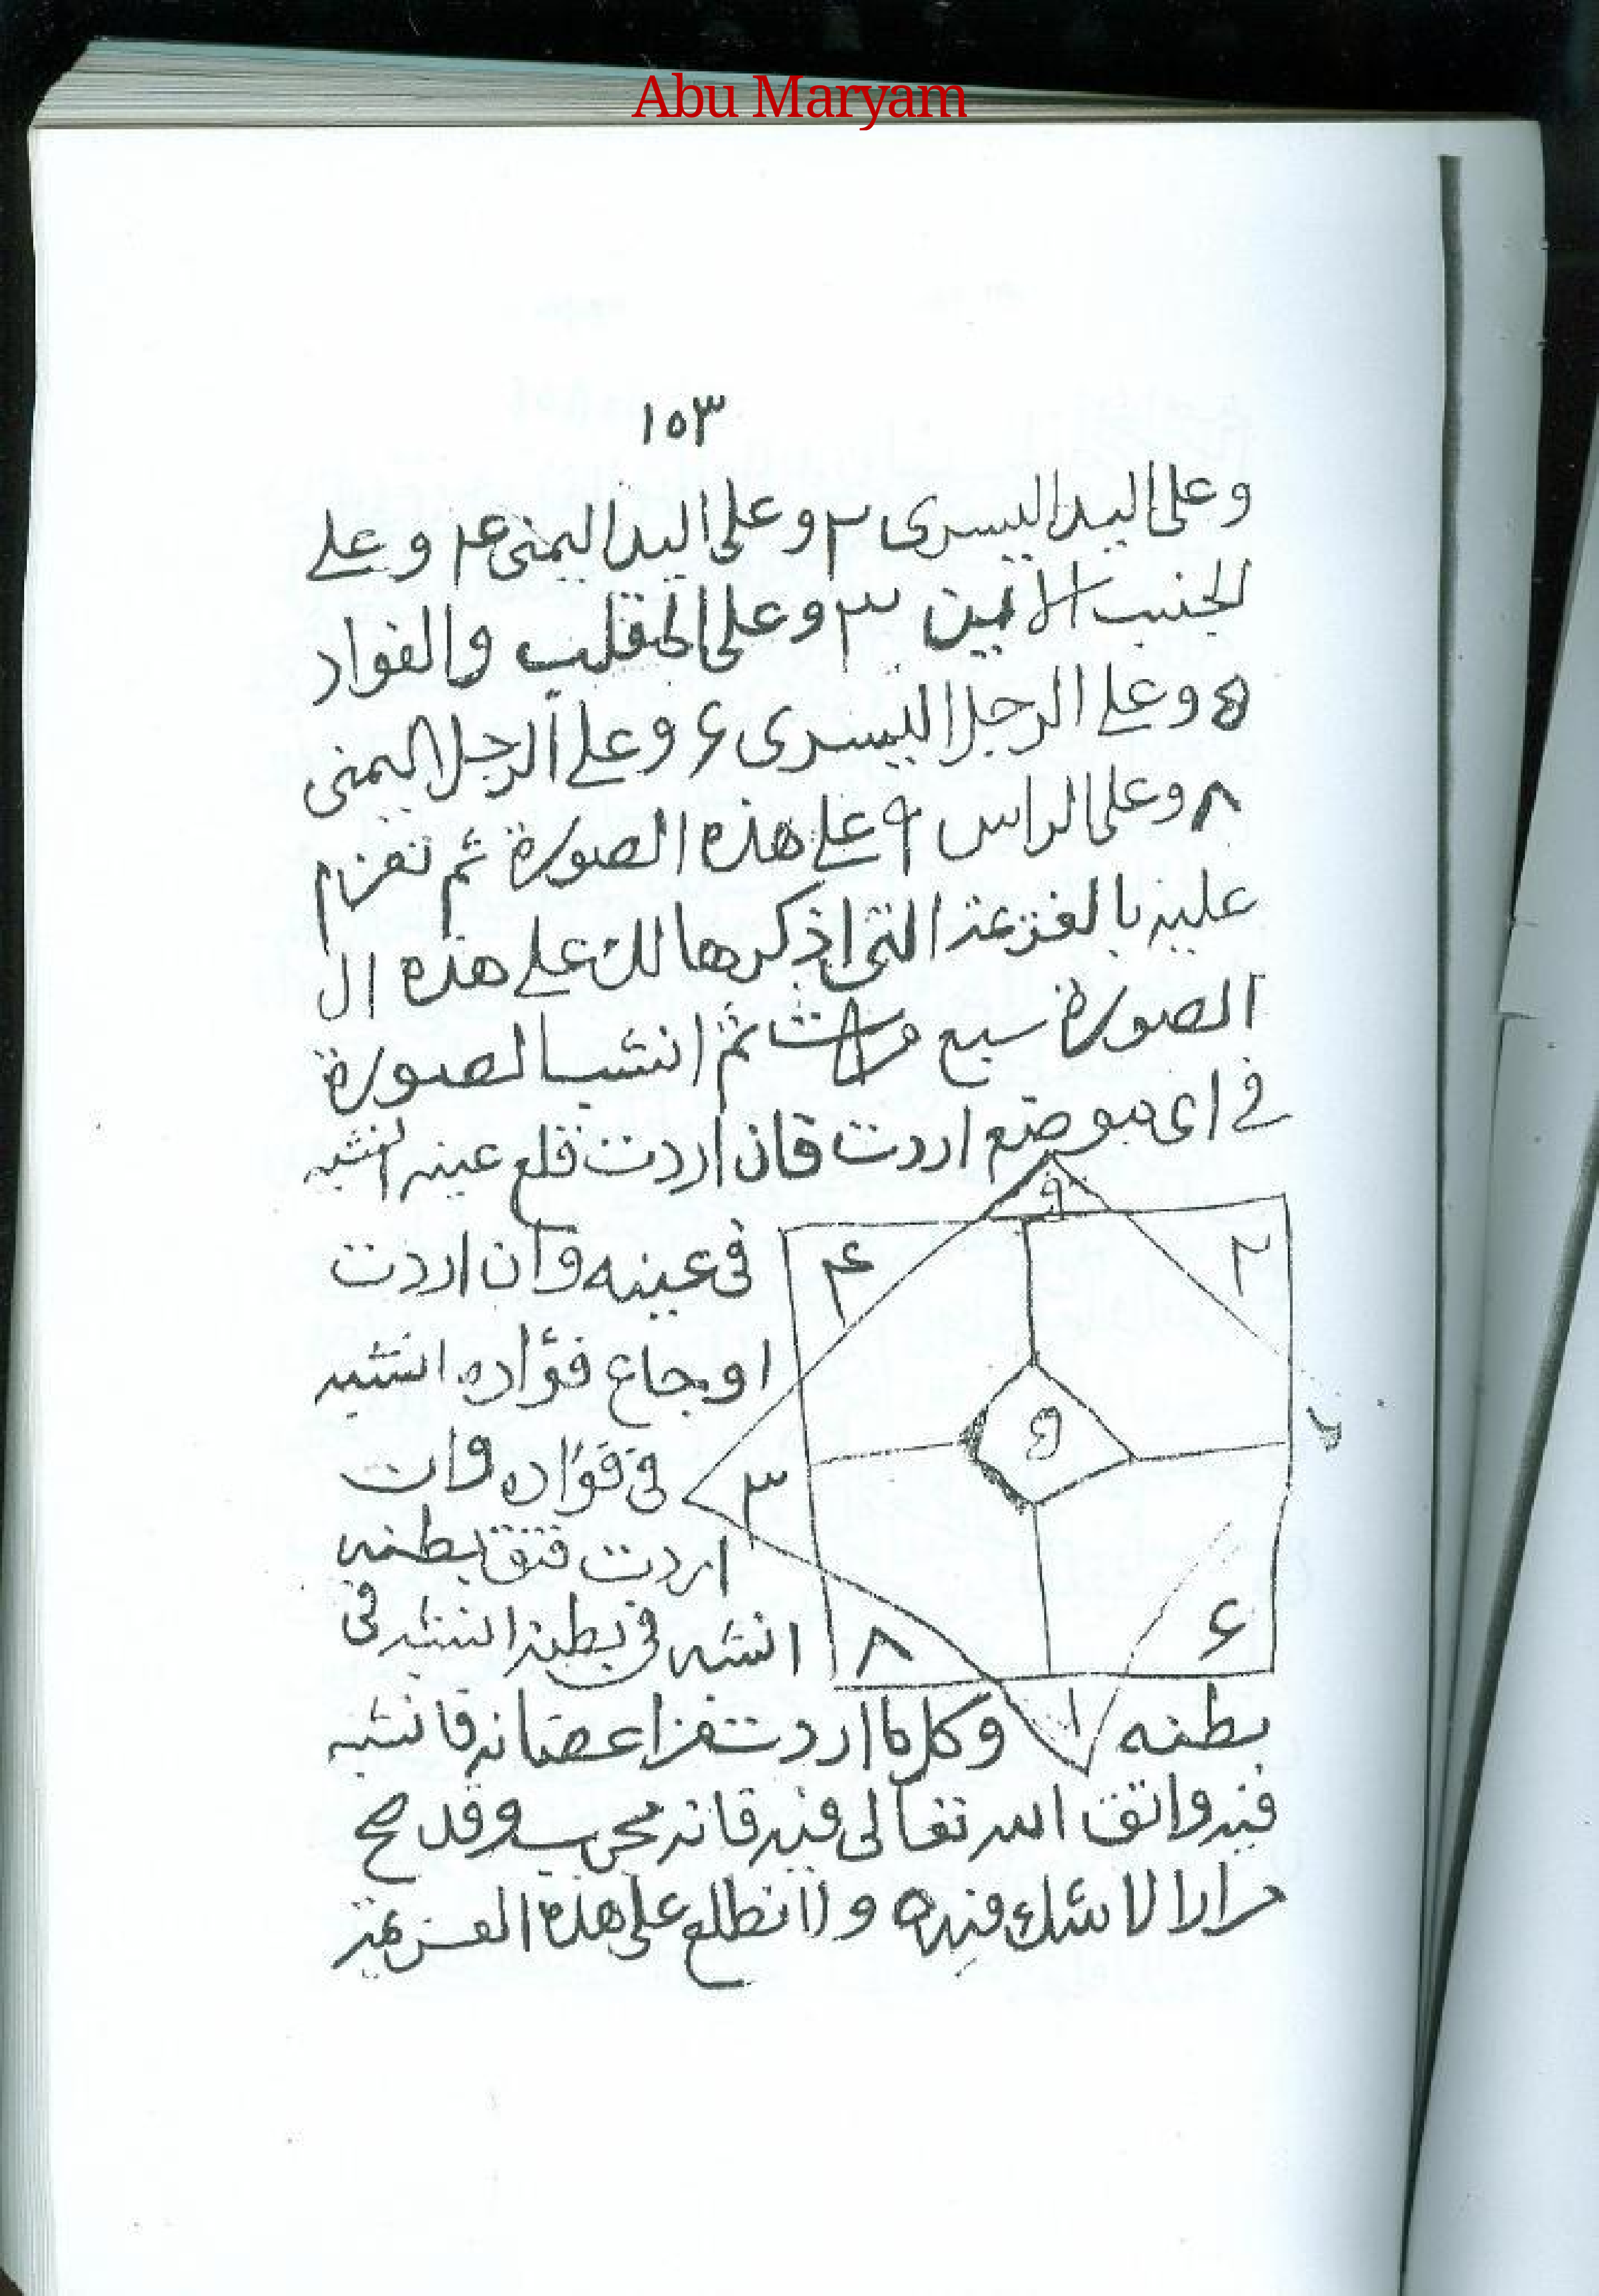 Abu Maryam
١٥٣
وعلى اليد اليسرى ٢ وعلى اليد اليمنى ۴ وعلى
الجنب الايمن ٣ وعلى القلب والفواد
٥ وعلى الرجل اليسرى ۶ وعلى الرجل اليمنى
٨ وعلى الراس ٩ على هذه الصورة ثم تعزم
عليه بالعزيمة التى اذكرها لك على هذه ال
الصورة سبع مرات ثم انشب الصورة
فى اى موضع اردت فان اردت قلع عينه انشبه
٩
۴
٢
فى عينه وان اردت
اوجاع فؤاده انشبه
٥
فى فؤاده وان
٣
اردت فتق بطنه
انشبه فى بطنه انشبه فى
٨
۶
بطنه
١
وكل ما اردت من اعضائه فانشبه
فيه واتق الله تعالى فيه فانه مجرب وقد صح
مرارا لا شك فيه ولا تطلع على هذه العزيمة